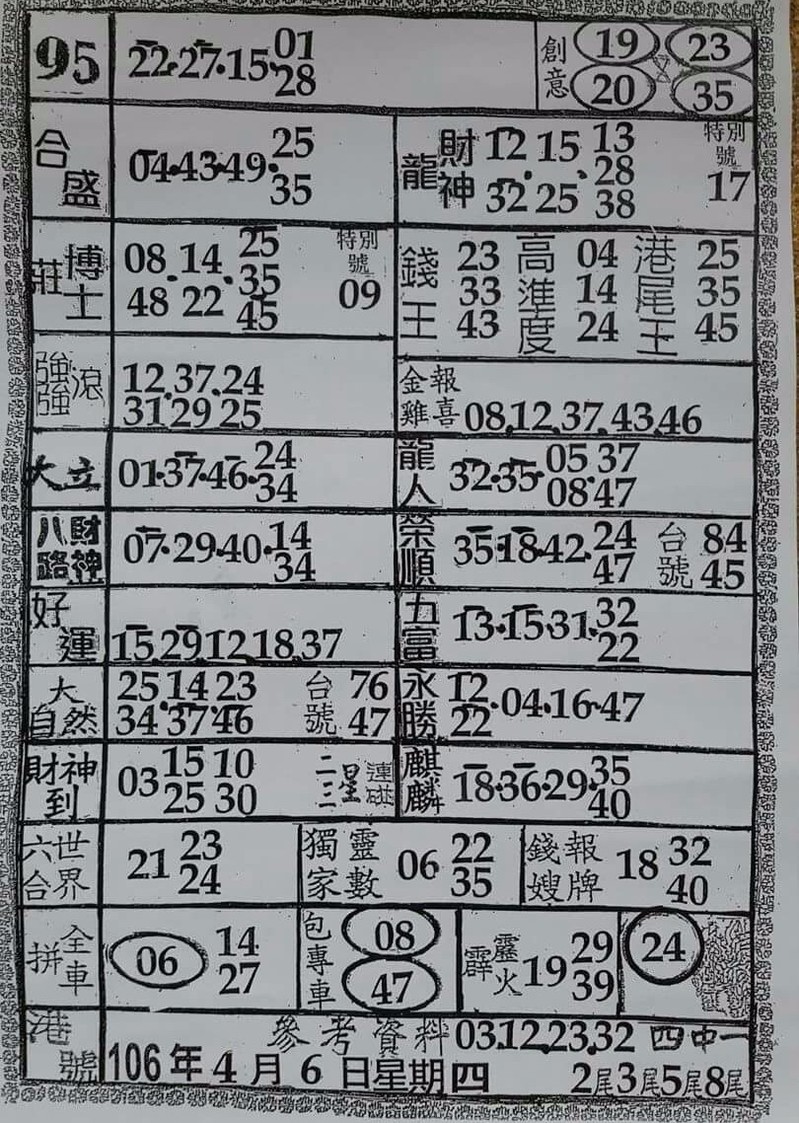 95 22·27·15·01 28 創意 19 23 20 35
合盛 04·43·49·25 35
龍 財神 12 15 13 28 32 25 38 特別號 17
莊博士 08·14·25 35 48 22 45 特別號 09
錢王 23 33 43 高準度 04 14 24 港尾王 25 35 45
強強滾 12.37.24
31 29 25
金雞報喜 08.12.37.43.46
大立 01·37·46·24 34
龍人 32·35·05 37 08 47
八路財神 07·29·40·14 34
榮順 35·18·42·24 47 台號 84 45
好運 15.29.12.18.37
五富 13·15·31·32 22
大自然 25 14 23
34 37 46 台號 76 47
永勝 12 22·04·16·47
財神到 03 15 10 25 30 二三星連碰
麒麟 18·36·29·35 40
六合世界 21 23 24
獨家靈數 06 22 35
錢嫂報牌 18 32 40
拼全車 06 14 27
包專車 08 47
霹靂火 19 29 39
24
港號 參考資料 03.12.23.32 四中一
106年4月6日星期四 2尾3尾5尾8尾